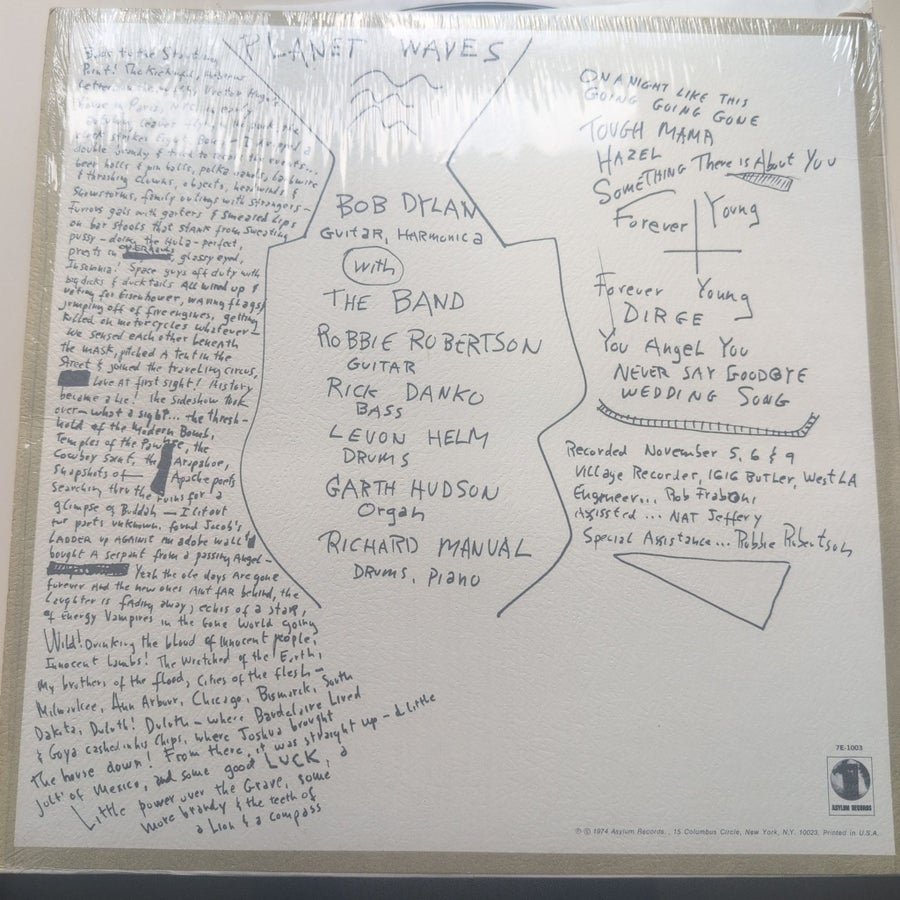 PLANET WAVES
Back to the Starting
Point! The Kickoff, Hebrew
Letters on the wall, Victor Hugo's
house in Paris, NYC in early
double brandy & tried to
beer halls & pin balls, polka bands, barbwire
& thrashing clowns, objects, headwinds &
Snowstorms, family outings with strangers—
Furious gals with garters & smeared lips
on bar stools that stank from sweating
pussy—doing the Hula—perfect,
priests in glassy eyed,
Insomnia! Space guys off duty with
big dicks & ducktails All wired up &
voting for Eisenhower, waving flags &
jumping off of fire engines, getting
killed on motorcycles whatever—
We sensed each other beneath
the mask, pitched A tent in the
Street & joined the traveling circus,
Love At first sight! History
became a lie! the sideshow took
over—what a sight... the thresh-
hold of the Modern Bomb,
Temples of the Pawnee, the
Cowboy saint, the Arapahoe,
Snapshots of— Apache poets
searching thru the ruins for a
glimpse of Buddah—I lit out
for parts unknown, found Jacob's
LADDER up AGAINST an adobe wall &
bought A serpant from a passing Angel—
Yeah the ole days Are gone
forever And the new ones Aint fAR behind, the
Laughter is fAding away, echos of a staR,
of Energy Vampires in the Gone World going
Wild! Drinking the blood of Innocent people,
Innocent Lambs! The Wretched of the Earth,
My brothers of the flood, Cities of the flesh—
Milwaukee, Ann Arbor, Chicago, Bismarck, South
Dakota, Duluth! Duluth—where Baudelaire Lived
& Goya cashed in his Chips, where Joshua brought
The house down! From there, it was straight up—a Little
jolt of Mexico, and some good LUCK, a
Little power over the Grave, some
more brandy & the teeth of
a Lion & a compass
BOB DYLAN
GUITAR, HARMONICA
with
THE BAND
ROBBIE ROBERTSON
GUITAR
RICK DANKO
BASS
LEVON HELM
DRUMS
GARTH HUDSON
Organ
RICHARD MANUAL
DRUMS, PIANO
ON A NIGHT LIKE THIS
GOING GOING GONE
TOUGH MAMA
HAZEL
SOMETHING There is About You
Forever Young
Forever Young
DIRGE
You Angel You
NEVER SAY GOODBYE
WEDDING SONG
Recorded November 5, 6 & 9
Village Recorder, 1616 BUTLER, West LA
Engineer... Rob Fraboni
Assisted... NAT Jeffery
Special Assistance... Robbie Robertson
7E-1003
ASYLUM RECORDS
℗ © 1974 Asylum Records, , 15 Columbus Circle, New York, N.Y. 10023. Printed in U.S.A.